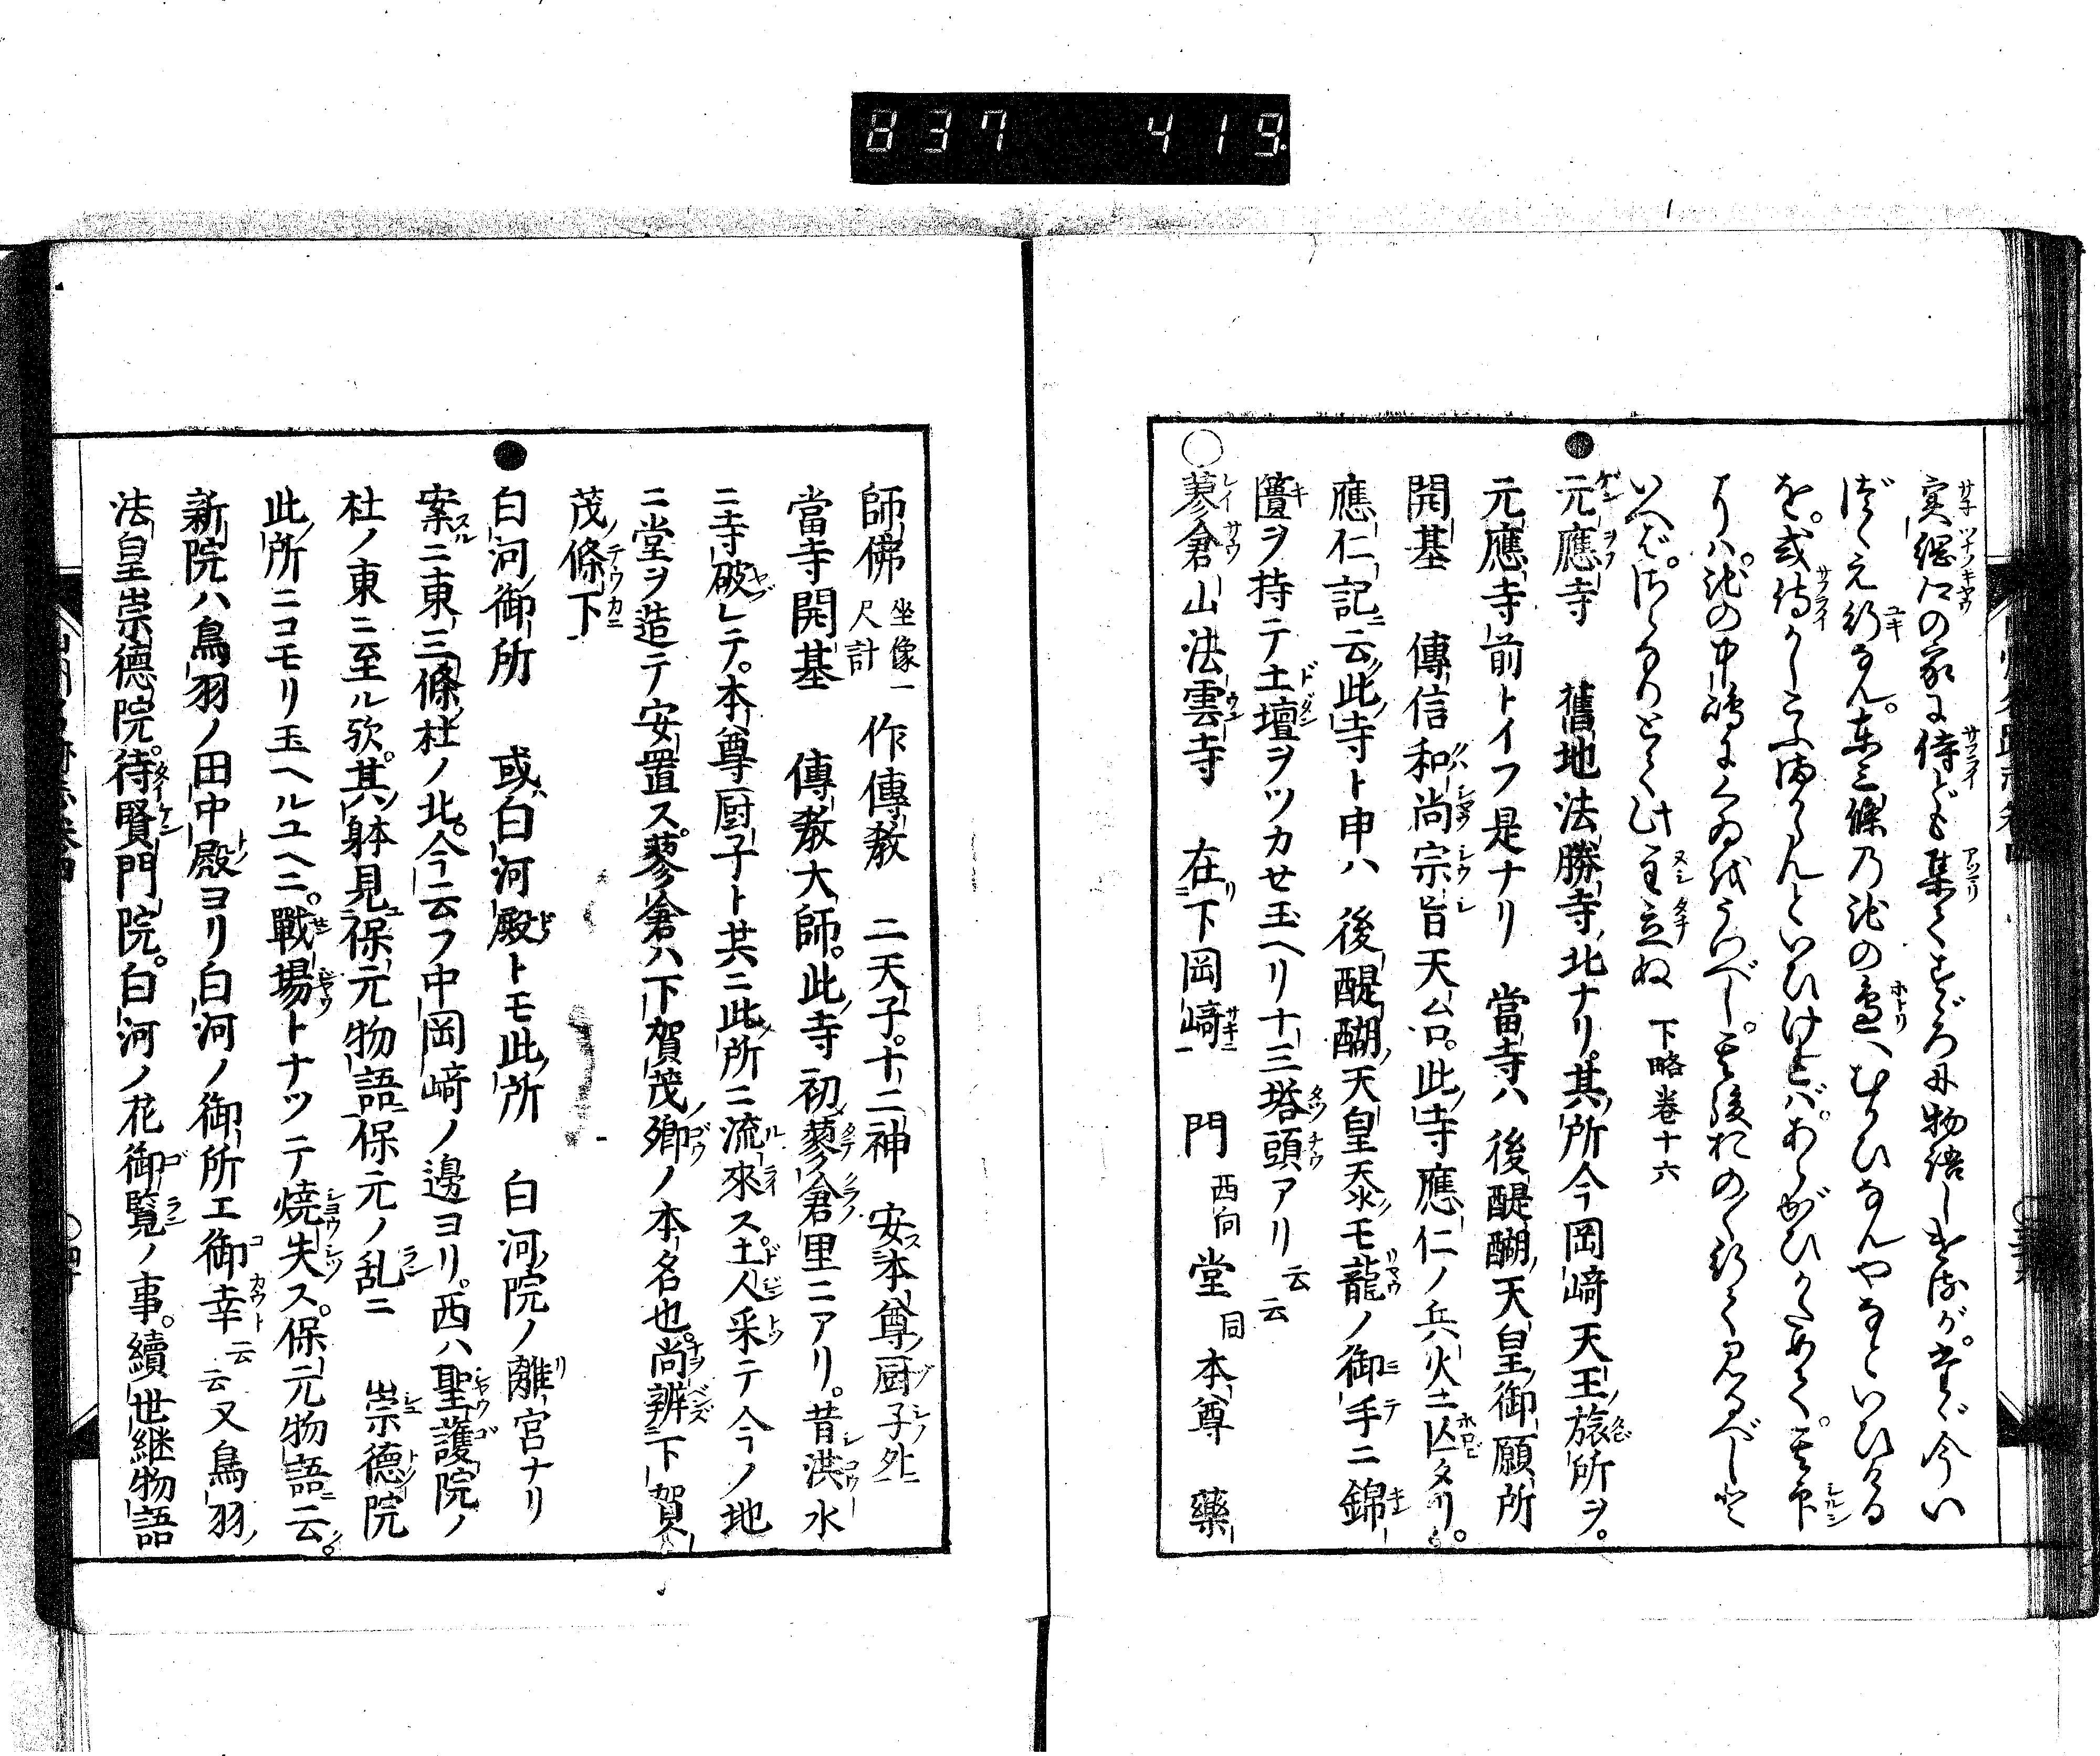 837 419
実綱卿の家に侍ども集てそゞろに物語しけるが。たゞ今い
づくえ行なん。東三條乃池の邊へむかひなんやなどいひける
を。或侍
よりハ。池の中嶋
下略卷十六
元應寺 舊地法勝寺ノ北ナリ。其ノ所今岡﨑天王ノ旅所ヲ。
元應寺前トイフ是ナリ 當寺ハ後醍醐ノ天皇ノ御願所
開基 傳信和尚宗旨天台。此ノ寺應仁ノ兵火ニ亡タリ。
應仁記ニ云ク此ノ寺ト申ハ後醍醐ノ天皇忝モ龍ノ御手ニ錦
簣ヲ持テ土壇ヲツカセ玉ヘリ十三塔頭アリ云云
蓼倉山法雲寺 在下岡﨑 門西向 堂同 本尊 藥
師佛坐像一尺計 作傳敎 二天子。十二神 安本尊ノ厨子ノ外ニ
當寺開基 傳敎大師。此ノ寺初蓼倉ノ里ニアリ。昔洪水
ニ寺破レテ。本尊厨子ト共ニ此ノ所ニ流來ス土人采テ今ノ地
ニ堂ヲ造テ安置ス。蓼倉ハ下賀茂ノ鄕ノ本名也。尚辨下賀
茂ノ條下
白河ノ御所 或ハ白河殿トモ此ノ所 白河ノ院ノ離宮ナリ
案ニ東三條ノ杜ノ北。今云フ中岡﨑ノ邊ヨリ。西ハ聖護院ノ
杜ノ東ニ至ル歟。其ノ躰見保元物語ニ保元ノ乱ニ 崇德院
此ノ所ニコモリ玉ヘルユヘニ。戰場トナツテ焼失ス。保元物語ニ云ク。
新院ハ鳥羽ノ田中殿ヨリ白河ノ御所エ御幸云云又鳥羽ノ
法皇崇德院。待賢門院。白河ノ花御覽ノ事。續世継物語